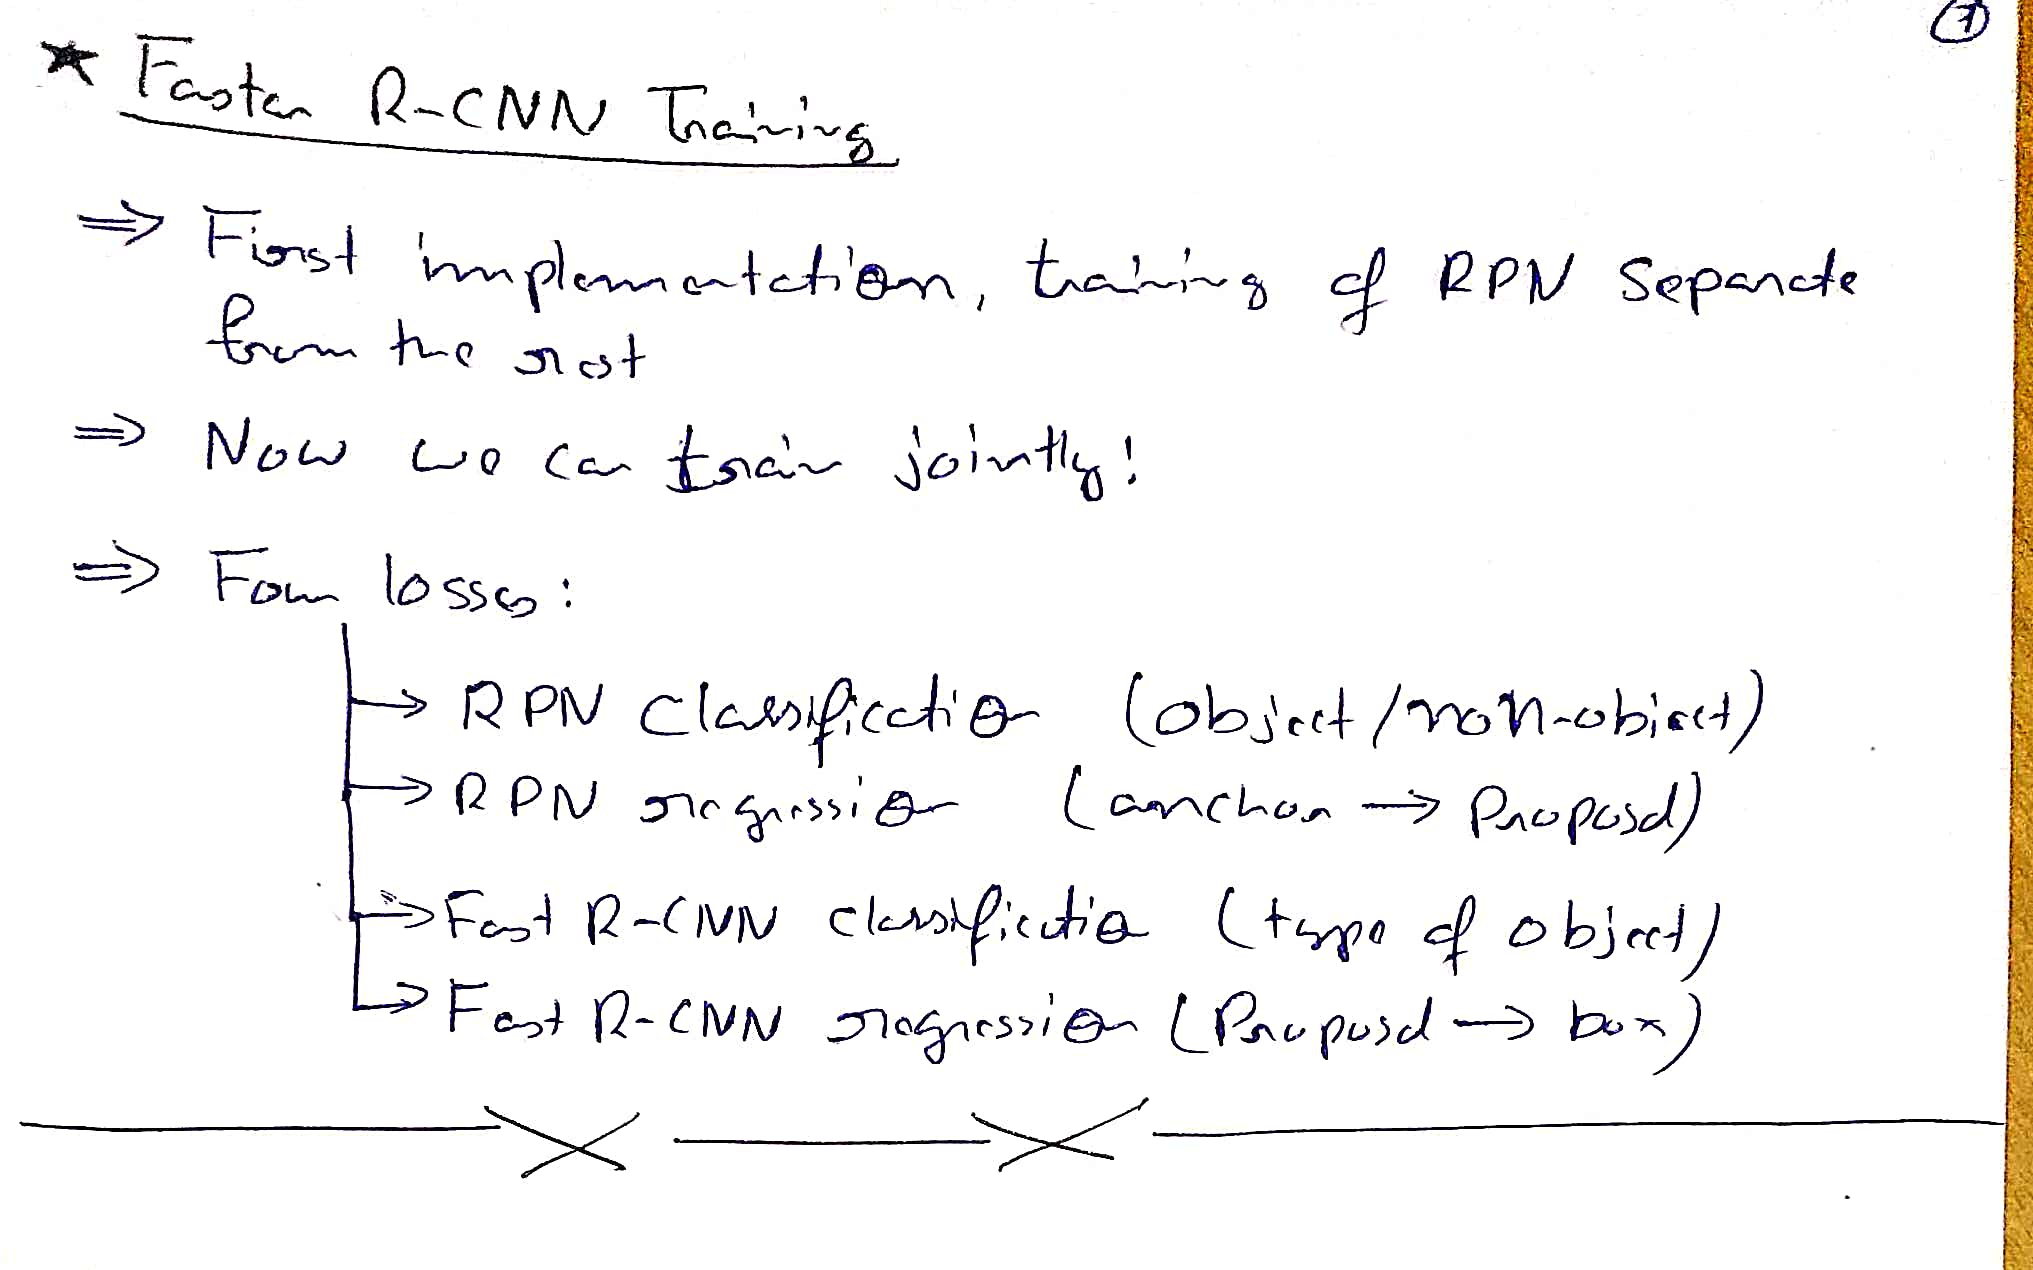 7
★ Faster R-CNN Training
⇒ First implementation, training of RPN separate
from the rest
⇒ Now we can train jointly!
⇒ Four losses:
→ RPN classification (object/non-object)
→ RPN regression (anchor → Proposal)
→ Fast R-CNN classification (type of object)
→ Fast R-CNN regression (Proposal → box)